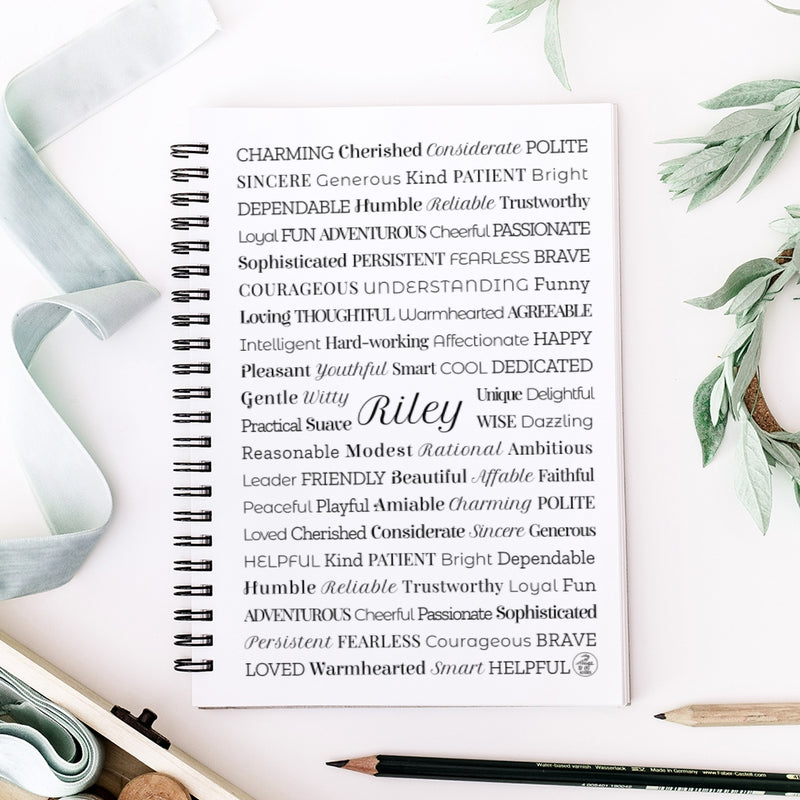 CHARMING Cherished Considerate POLITE
SINCERE Generous Kind PATIENT Bright
DEPENDABLE Humble Reliable Trustworthy
Loyal FUN ADVENTUROUS Cheerful PASSIONATE
Sophisticated PERSISTENT FEARLESS BRAVE
COURAGEOUS UNDERSTANDING Funny
Loving THOUGHTFUL Warmhearted AGREEABLE
Intelligent Hard-working Affectionate HAPPY
Pleasant Youthful Smart COOL DEDICATED
Gentle Witty Unique Delightful
Riley
Practical Suave WISE Dazzling
Reasonable Modest Rational Ambitious
Leader FRIENDLY Beautiful Affable Faithful
Peaceful Playful Amiable Charming POLITE
Loved Cherished Considerate Sincere Generous
HELPFUL Kind PATIENT Bright Dependable
Humble Reliable Trustworthy Loyal Fun
ADVENTUROUS Cheerful Passionate Sophisticated
Persistent FEARLESS Courageous BRAVE
LOVED Warmhearted Smart HELPFUL
Water-based varnish Wasserlack Made in Germany www.Faber-Castell.com